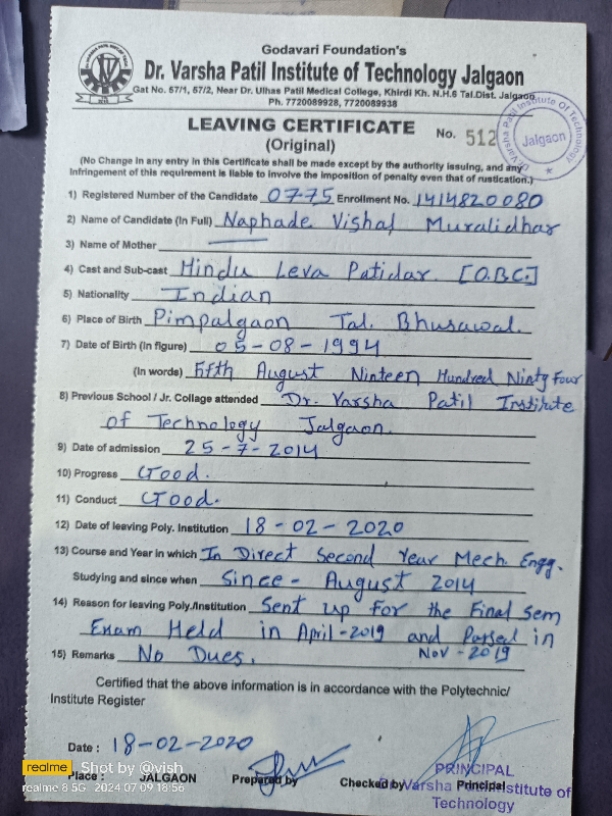 Godavari Foundation's
Dr. Varsha Patil Institute of Technology Jalgaon
Gat No. 57/1, 57/2, Near Dr. Ulhas Patil Medical College, Khirdi Kh. N.H.6 Tal.Dist. Jalgaon
Ph. 7720089928, 7720089938
LEAVING CERTIFICATE No. 512
(Original)
Dr. Varsha Patil Institute Of Technology
Jalgaon
(No Change in any entry in this Certificate shall be made except by the authority issuing, and any
infringement of this requirement is liable to involve the imposition of penalty even that of rustication.)
1) Registered Number of the Candidate 0775 Enrollment No. 1414820080
2) Name of Candidate (In Full) Naphade Vishal Muralidhar
3) Name of Mother
4) Cast and Sub-cast Hindu Leva Patidar [O.B.C.]
5) Nationality Indian
6) Place of Birth Pimpalgaon Tal. Bhusawal.
7) Date of Birth (In figure) 05-08-1994
(In words) Fifth August Ninteen Hundred Ninty Four
8) Previous School / Jr. Collage attended Dr. Varsha Patil Institute
of Technology Jalgaon.
9) Date of admission 25-7-2014
10) Progress Good.
11) Conduct Good.
12) Date of leaving Poly. Institution 18-02-2020
13) Course and Year in which In Direct Second Year Mech. Engg.
Studying and since when Since - August 2014
14) Reason for leaving Poly./Institution Sent up for the Final Sem
Exam Held in April-2019 and Passed in
Nov-2019
15) Remarks No Dues.
Certified that the above information is in accordance with the Polytechnic/
Institute Register
Date : 18-02-2020
realme Shot by @vish
Place : JALGAON Prepared by Checked by Principal
realme 8 5G 2024/07/09 18:56
PRINCIPAL
Varsha Patil Institute of
Technology